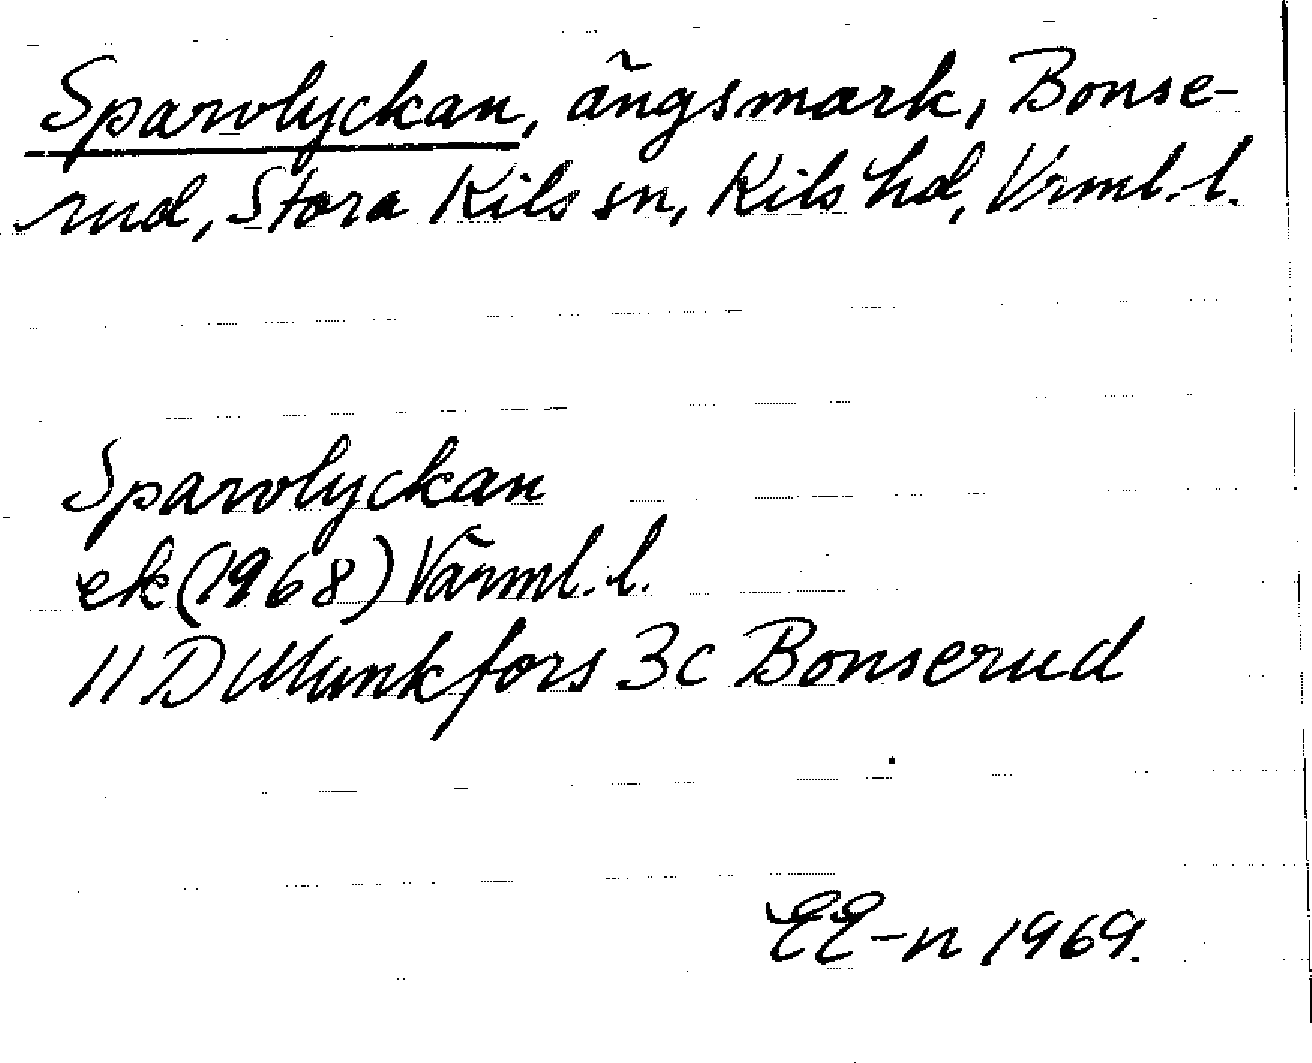 Sparvlyckan, ängsmark, Bonse-
rud, Stora Kils sn, Kils hd, Vrml.l.
Sparvlyckan
ek (1968) Värml.l.
11 D Munkfors 3c Bonserud
EE-n 1969.